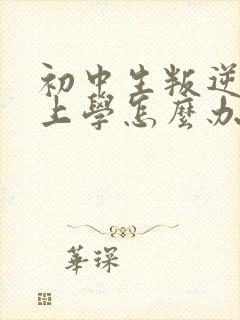 初中生叛逆
上學怎麼办
華琛